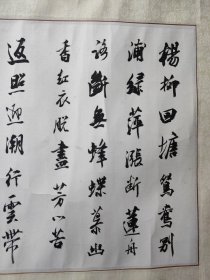 楊柳回塘鴛鴦別
浦綠萍漲斷蓮舟
路斷無蜂蝶慕幽
香紅衣脫盡芳心苦
返照迎潮行雲帶